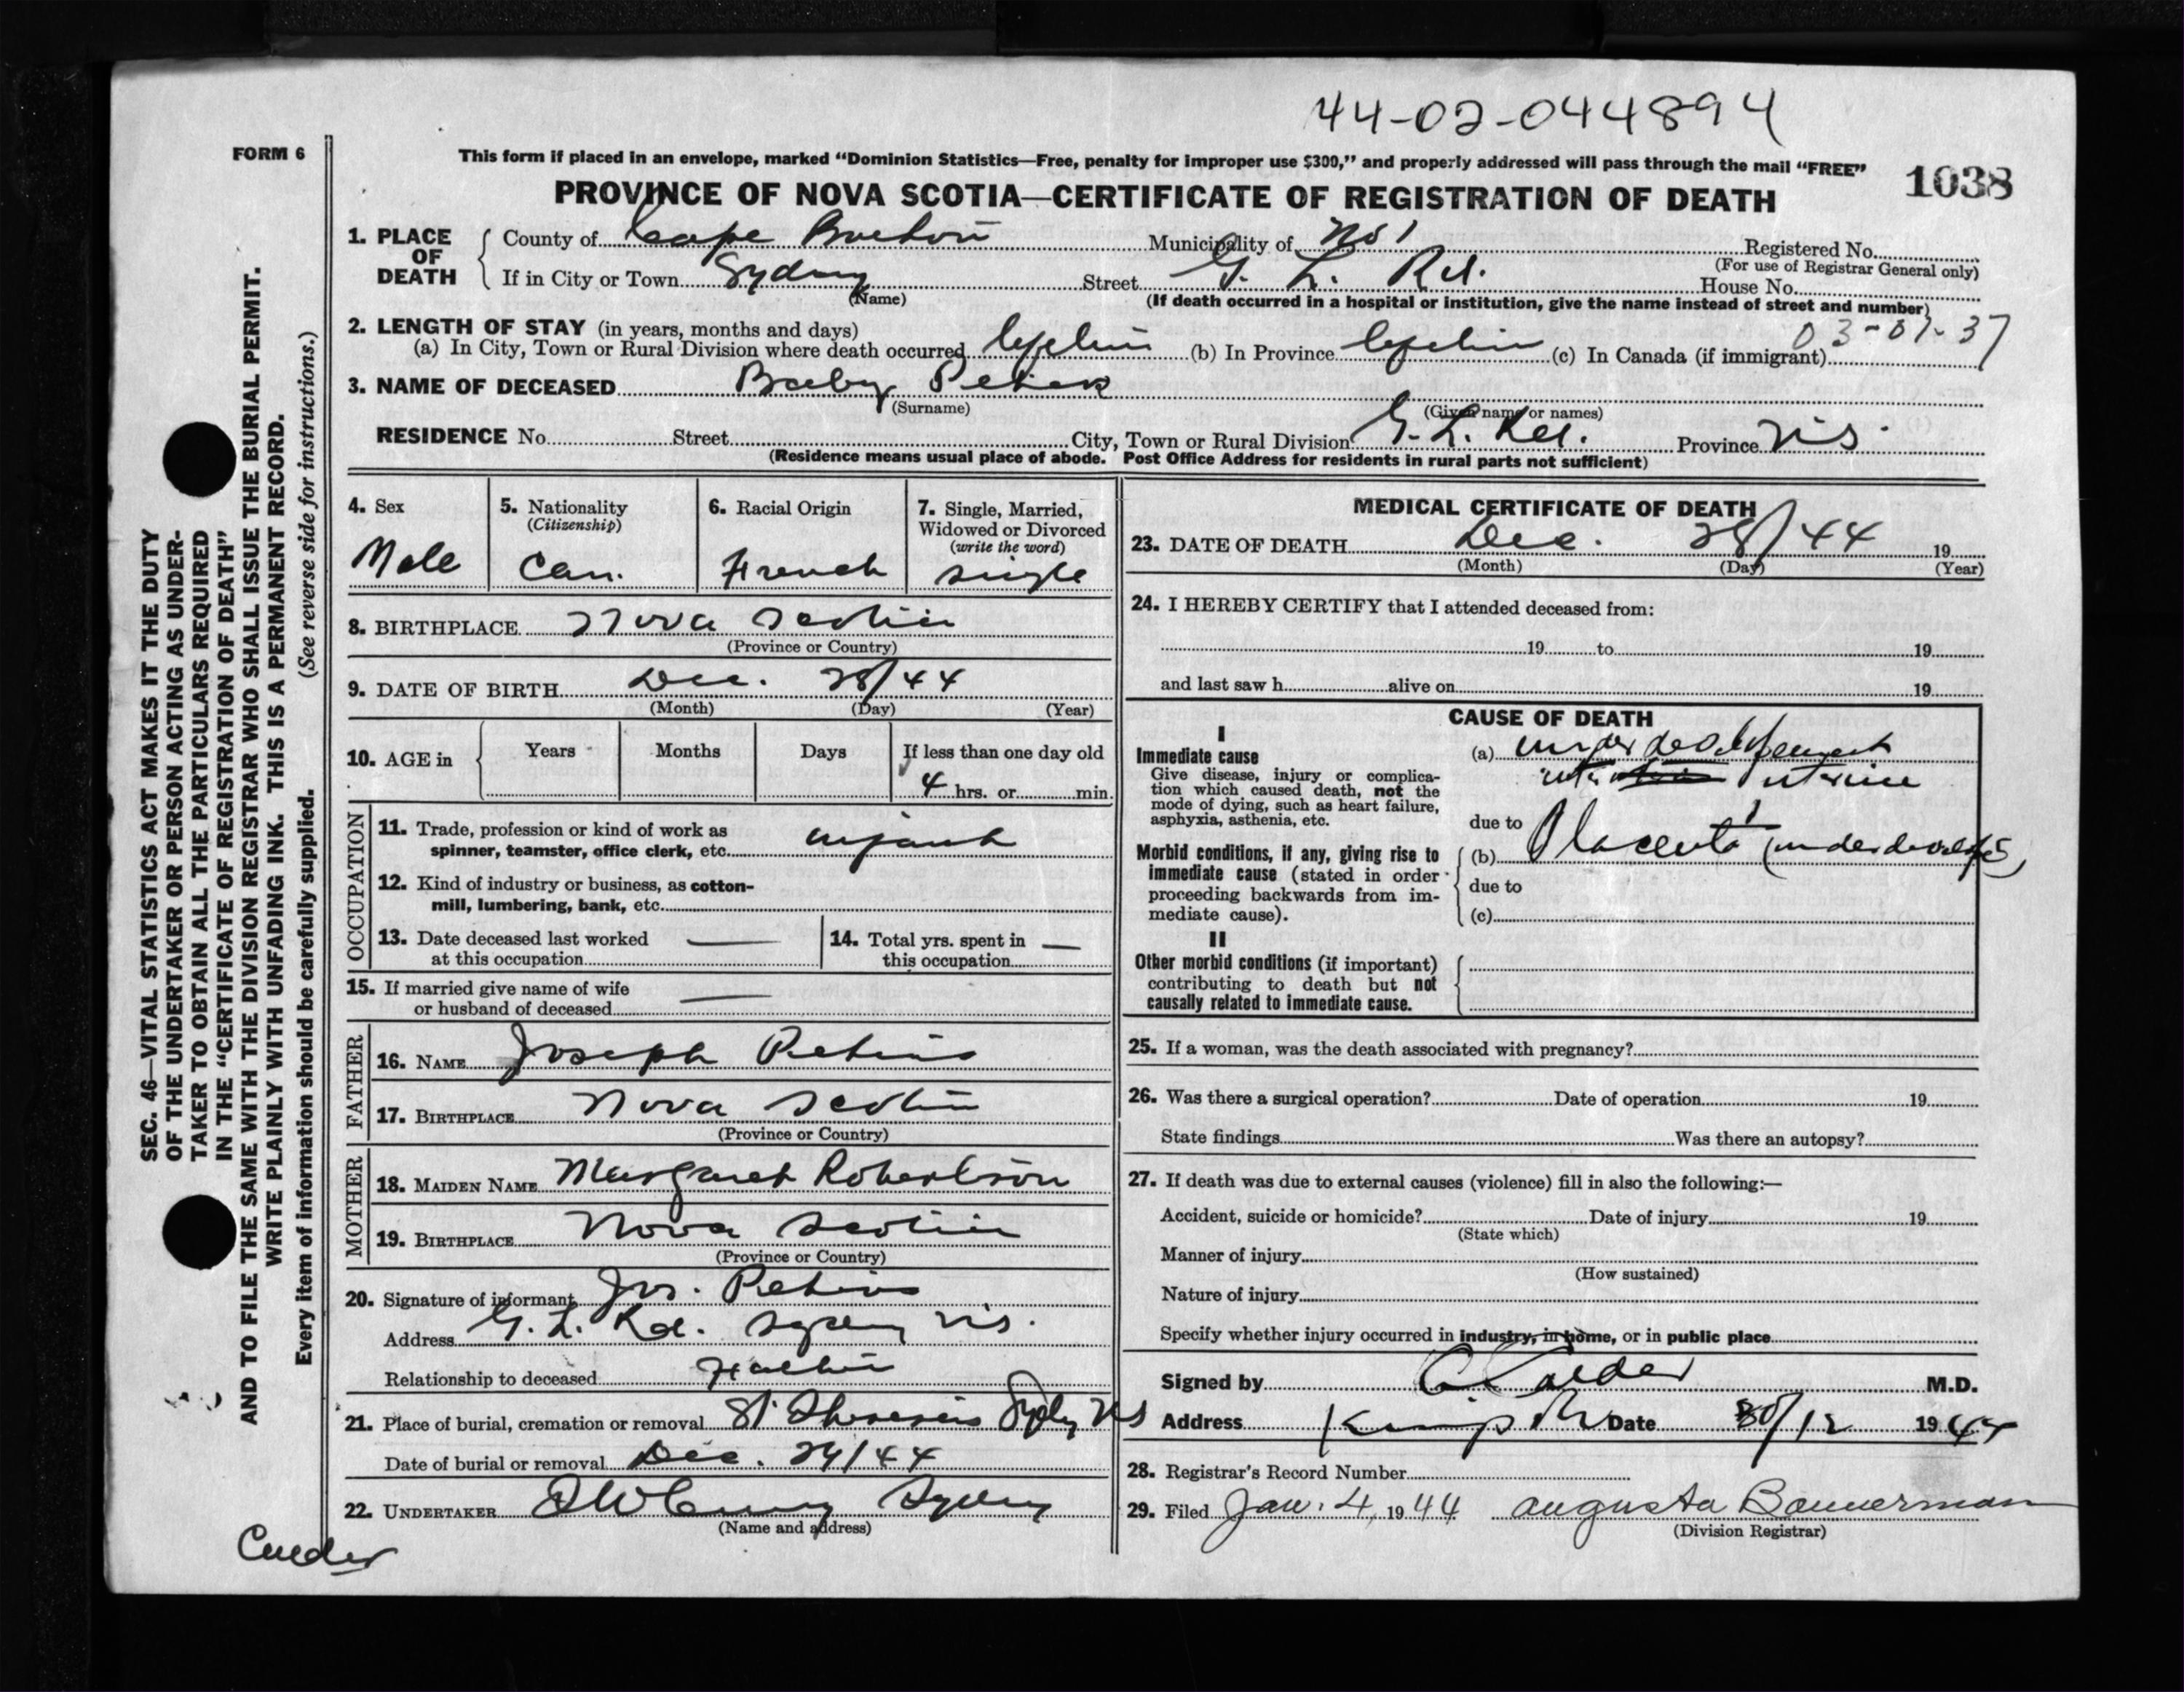 44-02-044894
FORM 6
This form if placed in an envelope, marked "Dominion Statistics—Free, penalty for improper use $300," and properly addressed will pass through the mail "FREE"
1038
PROVINCE OF NOVA SCOTIA—CERTIFICATE OF REGISTRATION OF DEATH
1. PLACE OF DEATH County of Cape Breton Municipality of No 1 Registered No.
(For use of Registrar General only)
If in City or Town Sydney Street G. L. Rd. House No.
(Name) (If death occurred in a hospital or institution, give the name instead of street and number)
2. LENGTH OF STAY (in years, months and days) 03-01-37
(a) In City, Town or Rural Division where death occurred (b) In Province (c) In Canada (if immigrant)
3. NAME OF DECEASED Baby
(Surname) (Given name or names)
RESIDENCE No. Street City, Town or Rural Division G. L. Rd. Province N.S.
(Residence means usual place of abode. Post Office Address for residents in rural parts not sufficient)
4. Sex Male
5. Nationality (Citizenship) Can.
6. Racial Origin French
7. Single, Married, Widowed or Divorced (write the word) single
8. BIRTHPLACE Nova Scotia
(Province or Country)
9. DATE OF BIRTH Dec. 28/44
(Month) (Day) (Year)
10. AGE in Years Months Days If less than one day old
4 hrs. or min.
OCCUPATION
11. Trade, profession or kind of work as
spinner, teamster, office clerk, etc. infant
12. Kind of industry or business, as cotton-
mill, lumbering, bank, etc.
13. Date deceased last worked
at this occupation —
14. Total yrs. spent in
this occupation —
15. If married give name of wife
or husband of deceased —
FATHER
16. NAME Joseph
17. BIRTHPLACE Nova Scotia
(Province or Country)
MOTHER
18. MAIDEN NAME Margaret Robertson
19. BIRTHPLACE Nova Scotia
(Province or Country)
20. Signature of informant Jos.
Address G. L. Rd. Sydney N.S.
Relationship to deceased Father
21. Place of burial, cremation or removal St. Theresa's Sydney NS
Date of burial or removal Dec. 29/44
22. UNDERTAKER Sydney
(Name and address)
Calder
MEDICAL CERTIFICATE OF DEATH
23. DATE OF DEATH Dec. 28/44 19
(Month) (Day) (Year)
24. I HEREBY CERTIFY that I attended deceased from:
19 to 19
and last saw h alive on 19
CAUSE OF DEATH
I
Immediate cause
Give disease, injury or complica-
tion which caused death, not the
mode of dying, such as heart failure,
asphyxia, asthenia, etc.
(a) underdevelopment
intra uterine
due to
Morbid conditions, if any, giving rise to
immediate cause (stated in order
proceeding backwards from im-
mediate cause).
(b) Placenta (underdevelop
due to
(c)
II
Other morbid conditions (if important)
contributing to death but not
causally related to immediate cause.
25. If a woman, was the death associated with pregnancy?
26. Was there a surgical operation? Date of operation 19
State findings Was there an autopsy?
27. If death was due to external causes (violence) fill in also the following:—
Accident, suicide or homicide? Date of injury 19
(State which)
Manner of injury
(How sustained)
Nature of injury
Specify whether injury occurred in industry, in home, or in public place
Signed by Calder M.D.
Address Date 30/12 1944
28. Registrar's Record Number
29. Filed Jan. 4, 1944 Augusta Bannerman
(Division Registrar)
SEC. 46—VITAL STATISTICS ACT MAKES IT THE DUTY
OF THE UNDERTAKER OR PERSON ACTING AS UNDER-
TAKER TO OBTAIN ALL THE PARTICULARS REQUIRED
IN THE "CERTIFICATE OF REGISTRATION OF DEATH"
AND TO FILE THE SAME WITH THE DIVISION REGISTRAR WHO SHALL ISSUE THE BURIAL PERMIT.
WRITE PLAINLY WITH UNFADING INK. THIS IS A PERMANENT RECORD.
Every item of information should be carefully supplied. (See reverse side for instructions.)